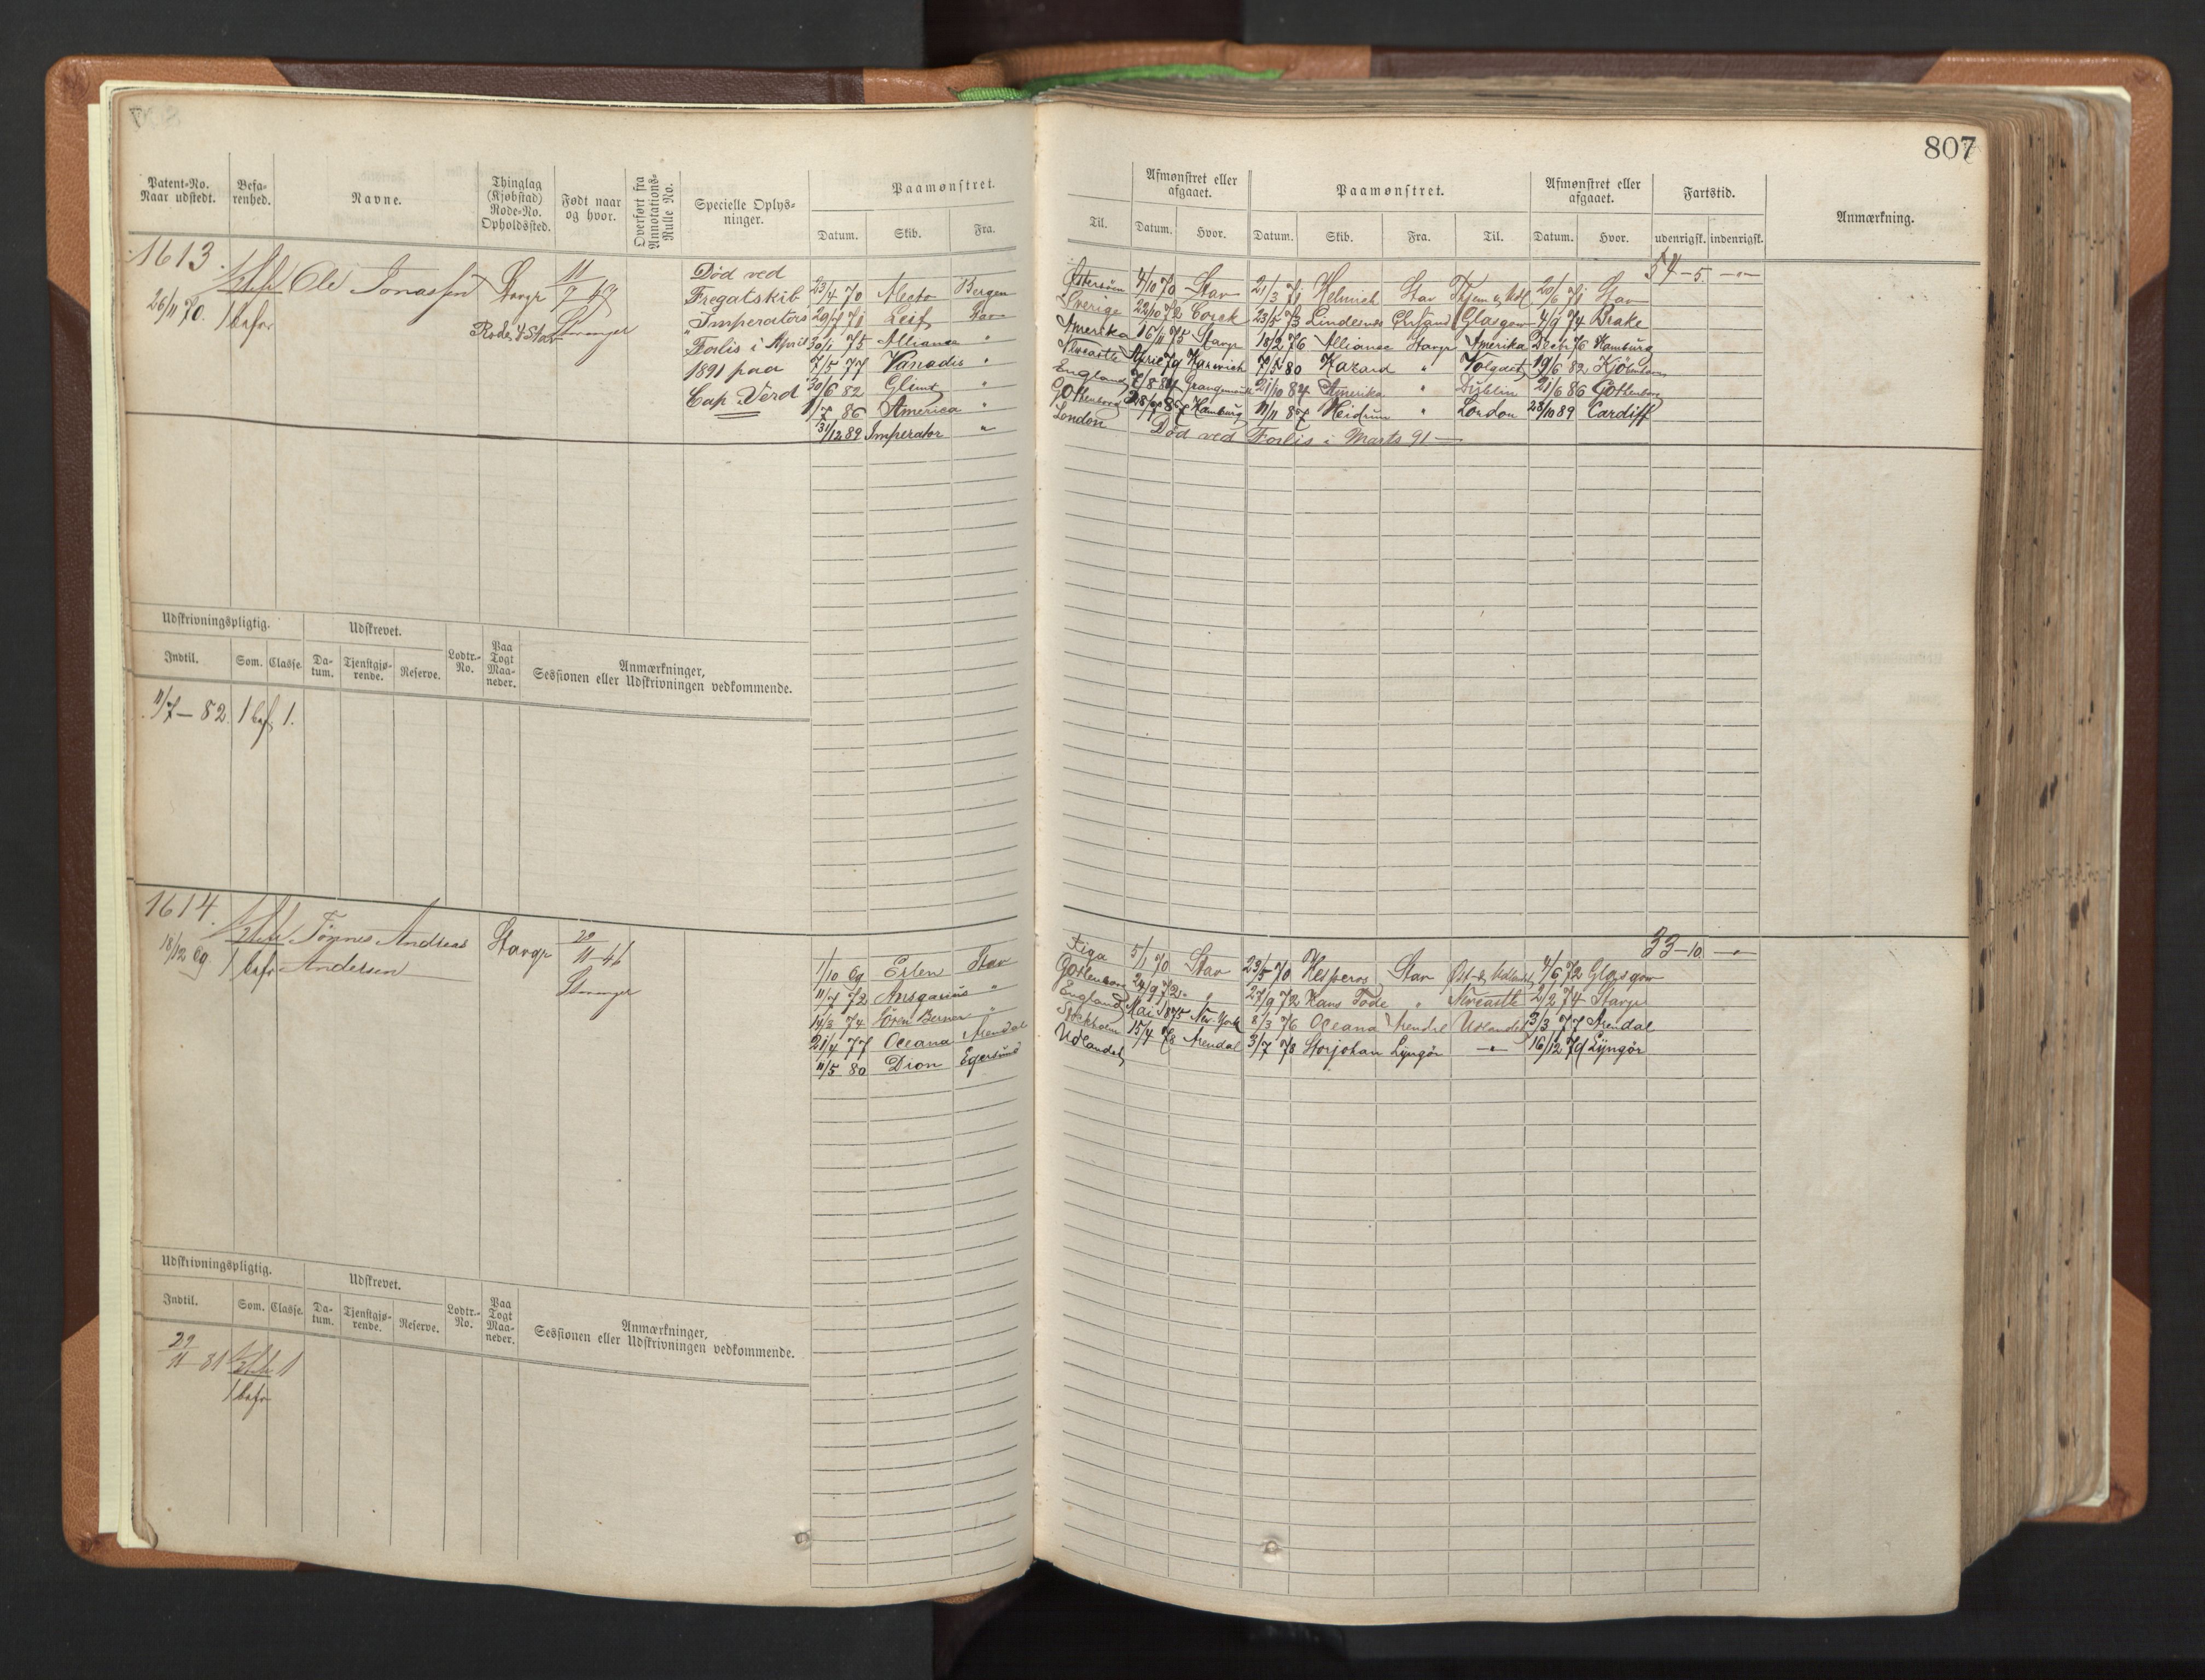 807
Patent-No. Naar udstedt.
Befarenhed.
Navne.
Thinglag (Kjøbstad) Rode-No. Opholdssted.
Født naar og hvor.
Overført fra Annotations-Rulle No.
Specielle Oplysninger.
Paamønstret.
Datum. Skib. Fra.
Til.
Afmønstret eller afgaaet.
Datum. Hvor.
Paamønstret.
Datum. Skib. Fra. Til.
Afmønstret eller afgaaet.
Datum. Hvor.
Fartstid.
udenrigsk. indenrigsk.
Anmærkning.
1613.
26/11 70.
1 befar
Ole Jonassen
Stavgr
Rode 4 Stav
11/7 49
Stavanger
Død ved
Fregatskib
"Imperators"
Forlis i April
1891 paa
Cap Verd
54-5 -"-
23/4 70 Alecto Bergen Østersøen 4/10 70 Stav 21/3 71 Helmich Stav Thjem & Udl 20/6 71 Stav
29/7 71 Leif Stav Sverige 22/10 72 Corck 23/5 73 Lindesnes Chrsand Glasgow 4/9 74 Brake
30/1 75 Alliance " Amerika 16/11 75 Stavgr 18/2 76 Alliance Stavgr Amerika Decbr 76 Hamburg
7/5 77 Vanadis " Newcastle April 79 Harwich 7/5 80 Hazard " 19/6 82
30/6 82 Glimt " England 7/8 84 Grangemouth 21/10 84 Amerika " Dublin 21/6 86 Gothenborg
1/7 86 America " Gothenborg 87 Hamburg 11/11 87 Heidrun " London 23/10 89 Cardiff
31/12 89 Imperator " London Død ved Forlis i Marts 91 —
Udskrivningspligtig.
Indtil. Søm. Classe.
Udskrevet.
Datum. Tjenstgjørende. Reserve.
Lodtr.-No.
Paa Togt Maaneder.
Anmærkninger,
Sessionen eller Udskrivningen vedkommende.
11/7 — 82. 1 bef. 1.
1614.
18/12 69
1 befar
Tønnes Andreas
Andersen
Stavgr
29/11 46
Stavanger
33-10 -"-
1/10 69 Erlen Stav Riga 5/1 70 Stav 23/5 70 Hesperos Stav 4/6 72 Glasgow
11/7 72 Ansgarius " Gothenborg 24/9 72 " 27/9 72 Hans Tode " Newcastle 2/2 74 Stavgr
14/3 74 Søren Berner " England Mai 1875 New-York 8/3 76 Oceana Arendal Udlandet 3/3 77 Arendal
21/4 77 Oceana Arendal Stockholm 15/4 78 Arendal 3/7 78 Storjohan Lyngør -"- 16/12 79 Lyngør
11/5 80 Dion Egersund Udlandet
Udskrivningspligtig.
Indtil. Søm. Classe.
Udskrevet.
Datum. Tjenstgjørende. Reserve.
Lodtr.-No.
Paa Togt Maaneder.
Anmærkninger,
Sessionen eller Udskrivningen vedkommende.
29/11 81 1
1 befar